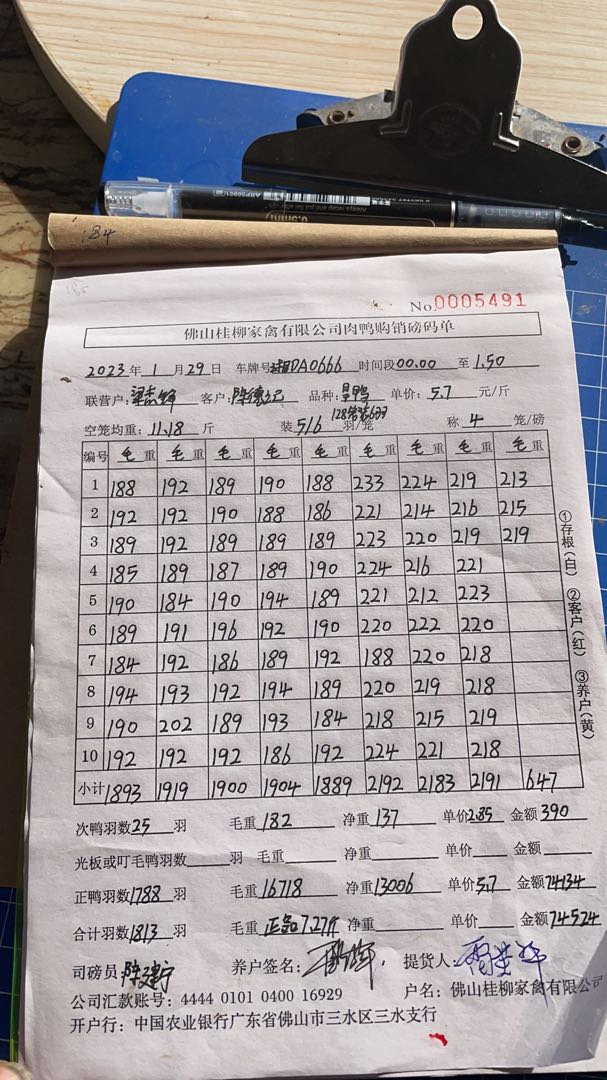 184
0.5mm
No.0005491
佛山桂柳家禽有限公司肉鸭购销磅码单
2023年 1 月 29 日 车牌号 DA0666 时间段 00.00 至 1.50
联营户: 客户: 品种: 单价: 5.7 元/斤
空笼均重: 11.18 斤 装 5/6 羽/笼 称 4 笼/磅
编号 毛重 毛重 毛重 毛重 毛重 毛重 毛重 毛重 毛重
1 188 192 189 190 188 233 224 219 213
2 192 192 190 188 186 221 214 216 215
3 189 192 189 189 189 223 220 219 219
4 185 189 187 189 190 224 216 221
5 190 184 190 194 189 221 212 223
6 189 191 196 192 190 220 222 220
7 184 192 186 189 192 188 220 218
8 194 193 192 194 189 220 219 218
9 190 202 189 193 184 218 215 219
10 192 192 192 186 192 224 221 218
小计 1893 1919 1900 1904 1889 2192 2183 2191 647
①存根(白) ②客户(红) ③养户(黄)
次鸭羽数 25 羽 毛重 182 净重 137 单价 2.85 金额 390
光板或叮毛鸭羽数 羽 毛重 净重 单价 金额
正鸭羽数 1788 羽 毛重 16718 净重 13006 单价 5.7 金额 74134
合计羽数 1813 羽 毛重 正品7.27斤 净重 单价 金额 74524
司磅员 养户签名: 提货人:
公司汇款账号: 4444 0101 0400 16929 户名: 佛山桂柳家禽有限公司
开户行: 中国农业银行广东省佛山市三水区三水支行